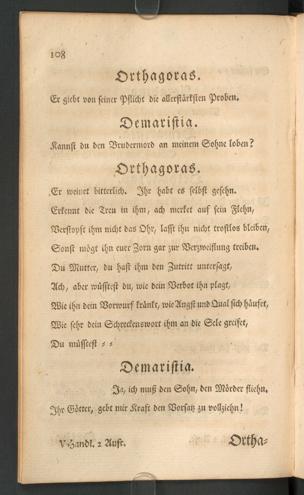 108
Orthagoras.
Er giebt von seiner Pflicht die allerstärksten Proben.
Demaristia.
Kannst du den Brudermord an meinem Sohne loben?
Orthagoras.
Er weinet bitterlich. Ihr habt es selbst gesehn.
Erkennt die Treu in ihm, ach merket auf sein Flehn,
Verstopft ihm nicht das Ohr, laßt ihn nicht trostlos bleiben,
Sonst mögt ihn euer Zorn gar zur Verzweiflung treiben.
Du Mutter, du hast ihm den Zutritt untersagt,
Ach, aber wüsstest du, wie dein Verbot ihn plagt,
Wie ihn dein Vorwurf kränkt, wie Angst und Qual sich häufet,
Wie sehr dein Schreckenswort ihm an die Sele greifet,
Du müsstest ⸗ ⸗
Demaristia.
Ja, ich muß den Sohn, den Mörder fliehn.
Ihr Götter, gebt mir Kraft den Vorsatz zu vollziehn!
V. Handl. 2 Auftr. Ortha⸗